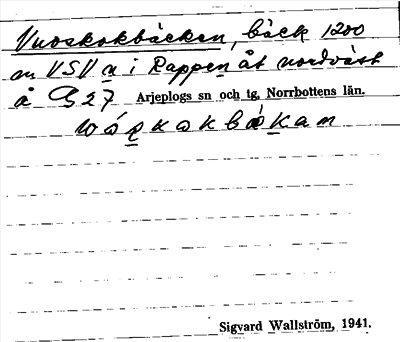 Vuoskokbäcken, bäck 1200
m VSV n i Rappen åt nordväst
å G 27 Arjeplogs sn och tg, Norrbottens län.
wóskokbäkan
Sigvard Wallström, 1941.